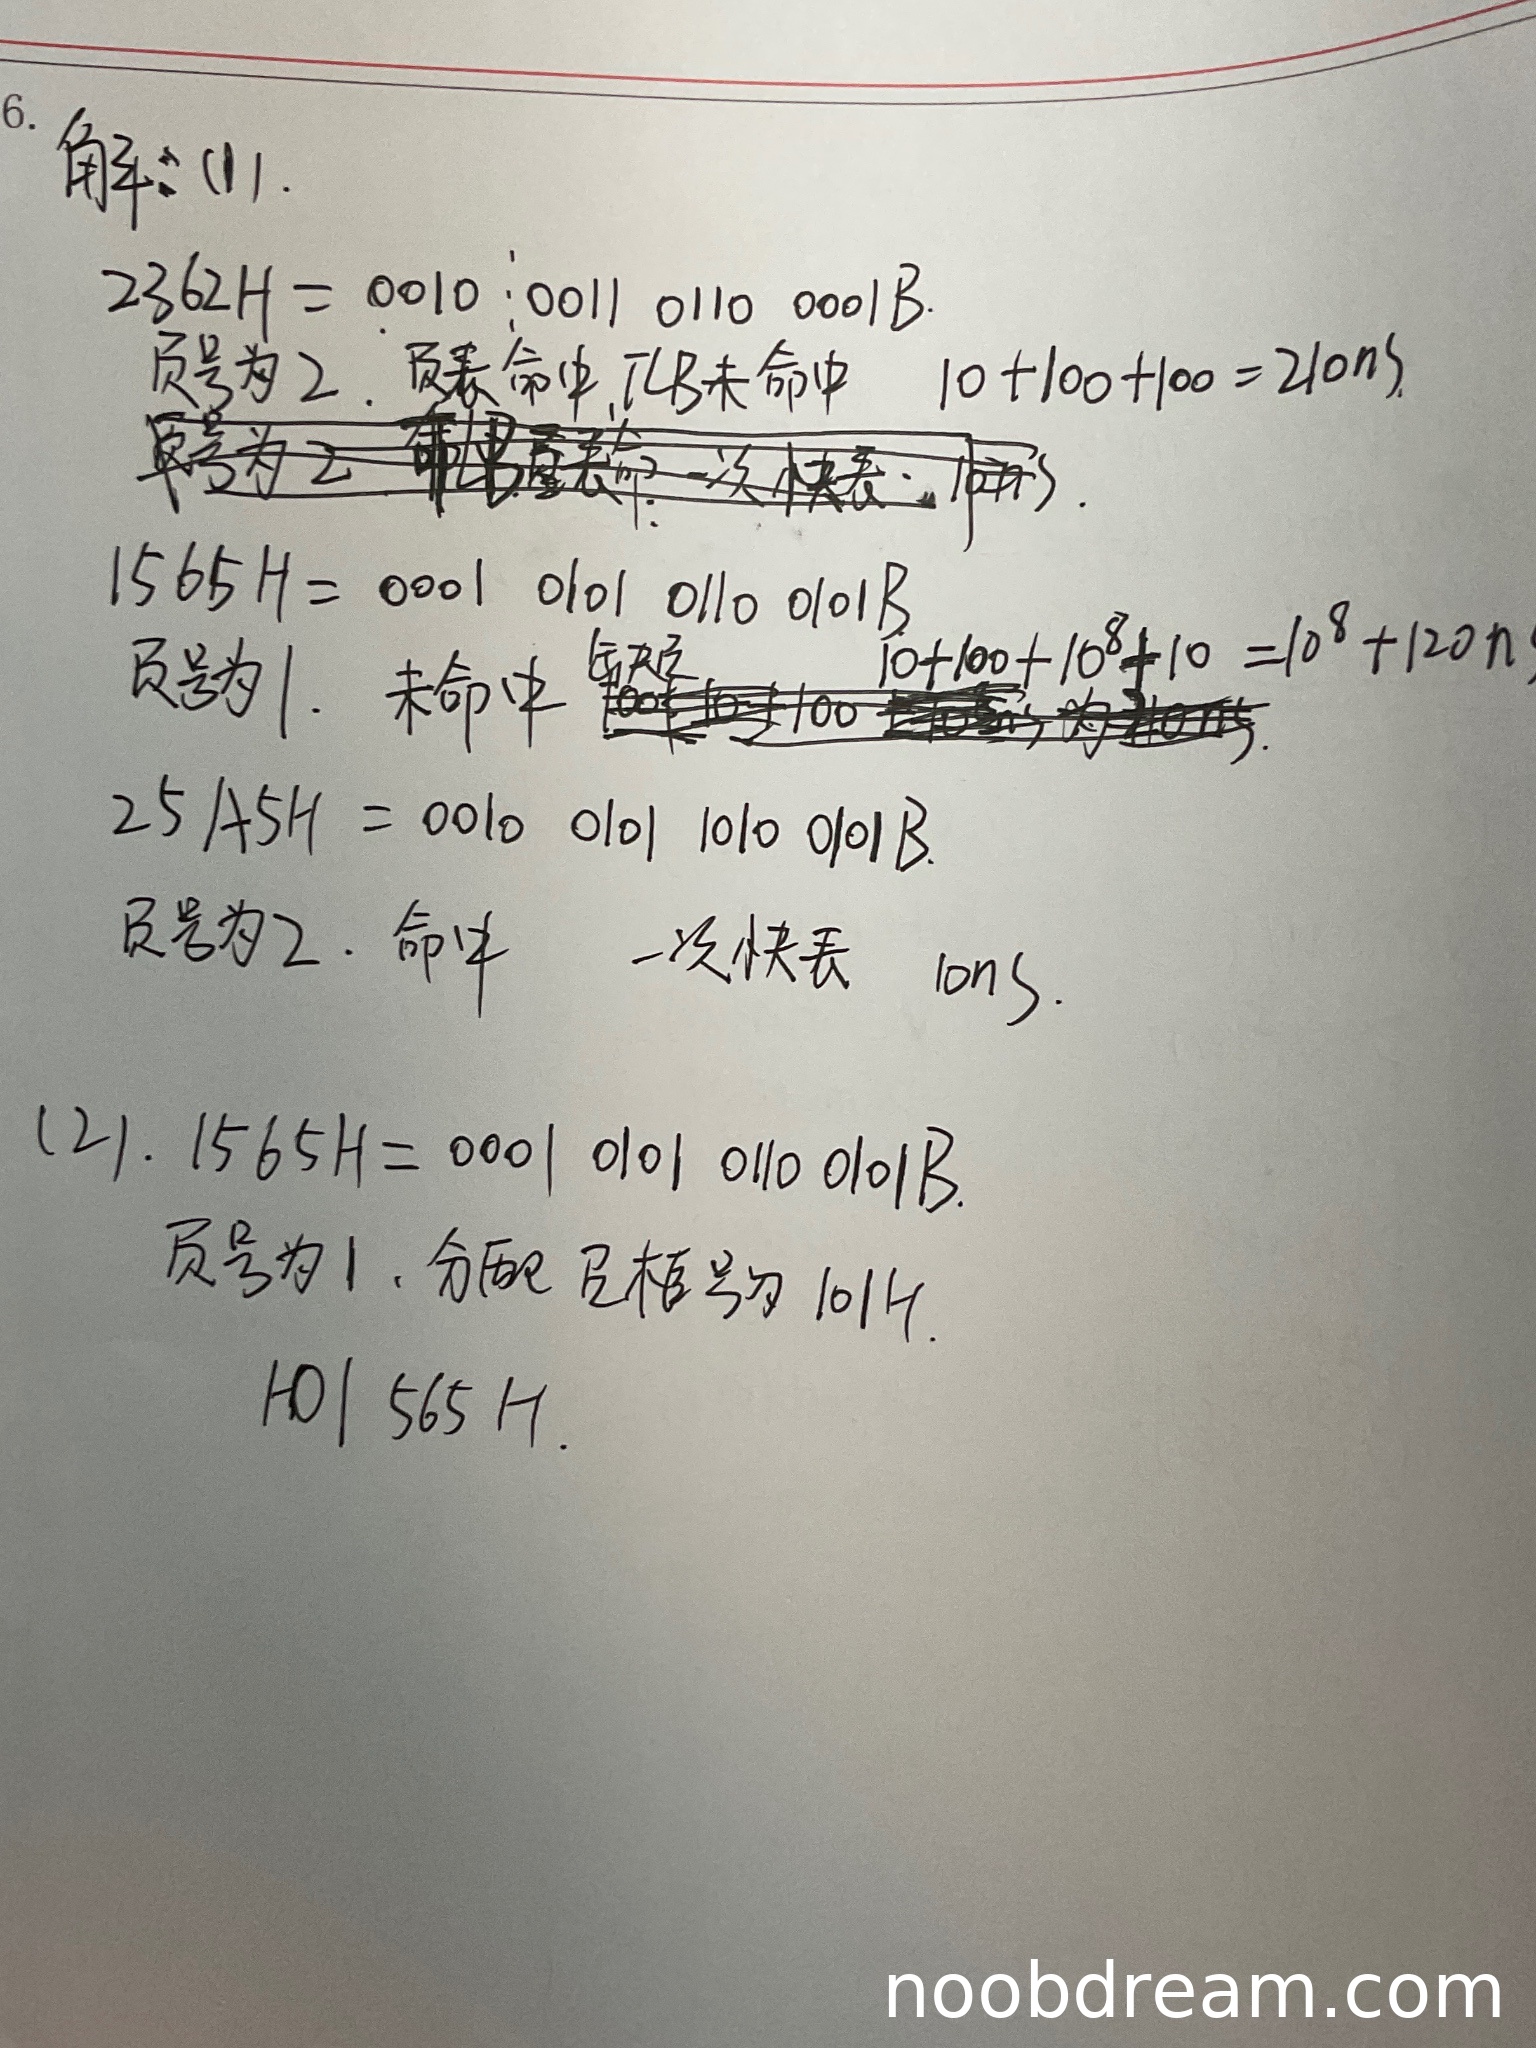 6.
解：(1).
2362H = 0010 0011 0110 0001B.
页号为2. 页表命中,TLB未命中 10+100+100=210ns.
1565H = 0001 0101 0110 0101B
页号为1. 未命中 缺页 10+100+10⁸+10 =10⁸+120ns
25A5H = 0010 0101 1010 0101B.
页号为2. 命中 一次快表 10ns.
(2). 1565H = 0001 0101 0110 0101B.
页号为1. 分配 页框号为 101H.
101 565 H.
noobdream.com